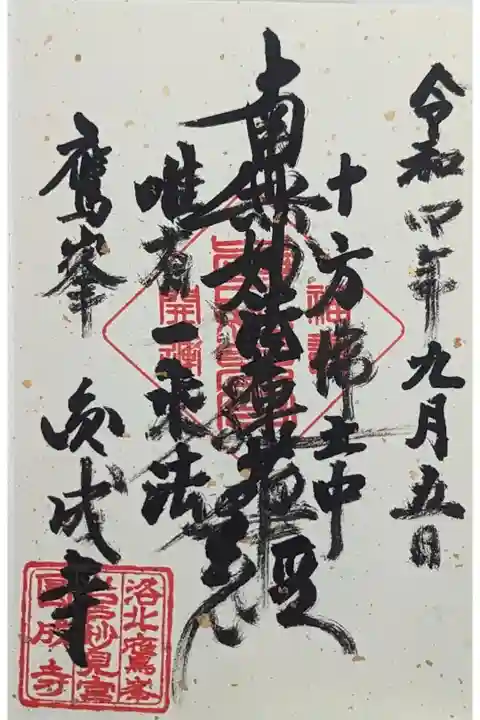 令和四年九月五日
十方佛土中
南無妙法蓮華経
唯有一乗法
鷹峯 圓成寺
開運
洛北鷹峯
岩戸妙見宮
圓成寺